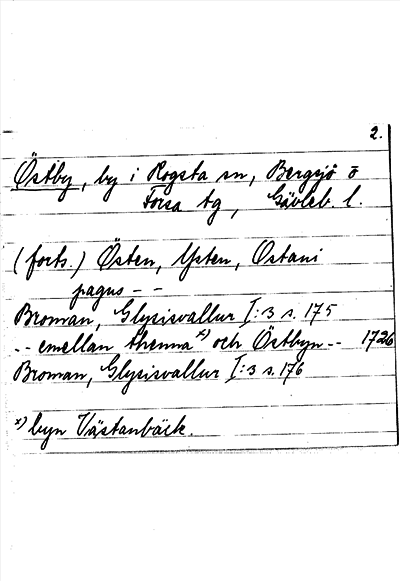 2.
Östby, by i Rogsta sn, Bergsjö o
Forsa tg, Gävleb. l.
(forts.) Östen, Ysten, Ostani
pagus - -
Broman, Glysisvallur I:3 s. 175
- - emellan thenna x) och Östbyn - - 1726
Broman, Glysisvallur I:3 s. 176
x) byn Västanbäck.